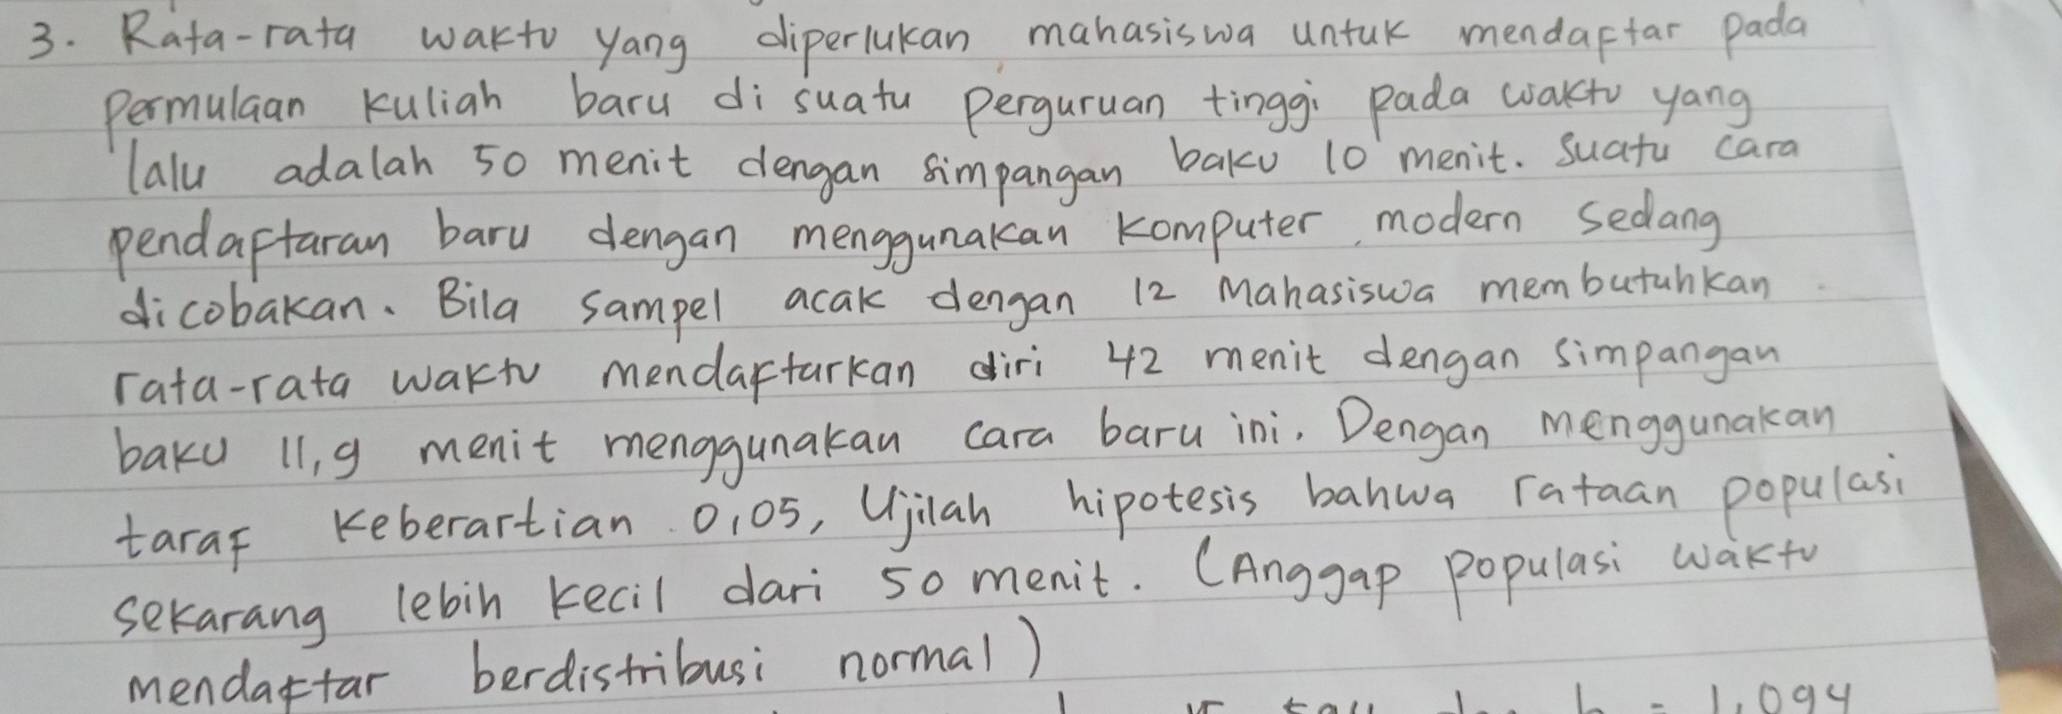 3. Rata-rata waktu yang diperlukan mahasiswa untuk mendaftar pada
permulaan kuliah baru di suatu perguruan tinggi pada waktu yang
lalu adalah 50 menit dengan simpangan baku 10 menit. Suatu cara
pendaftaran baru dengan menggunakan komputer modern sedang
dicobakan. Bila sampel acak dengan 12 Mahasiswa membutuhkan
rata-rata waktu mendaftarkan diri 42 menit dengan simpangan
baku 11,9 menit menggunakan cara baru ini. Dengan menggunakan
taraf keberartian 0,05, Ujilah hipotesis bahwa rataan populasi
sekarang lebih kecil dari 50 menit. (Anggap populasi waktu
mendaftar berdistribusi normal)
= 1,094